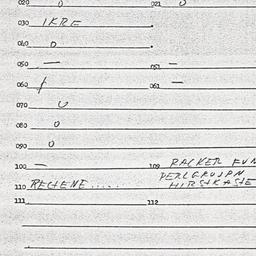 020 0 021 0
030 IKRE
040 0
050 — 051 —
060 / 061 —
070 0
080 0
090 0
100 — 109 RACKER FUN
PERLGRUJPN
110 RECHENE..... HIRSEKASE
111 112